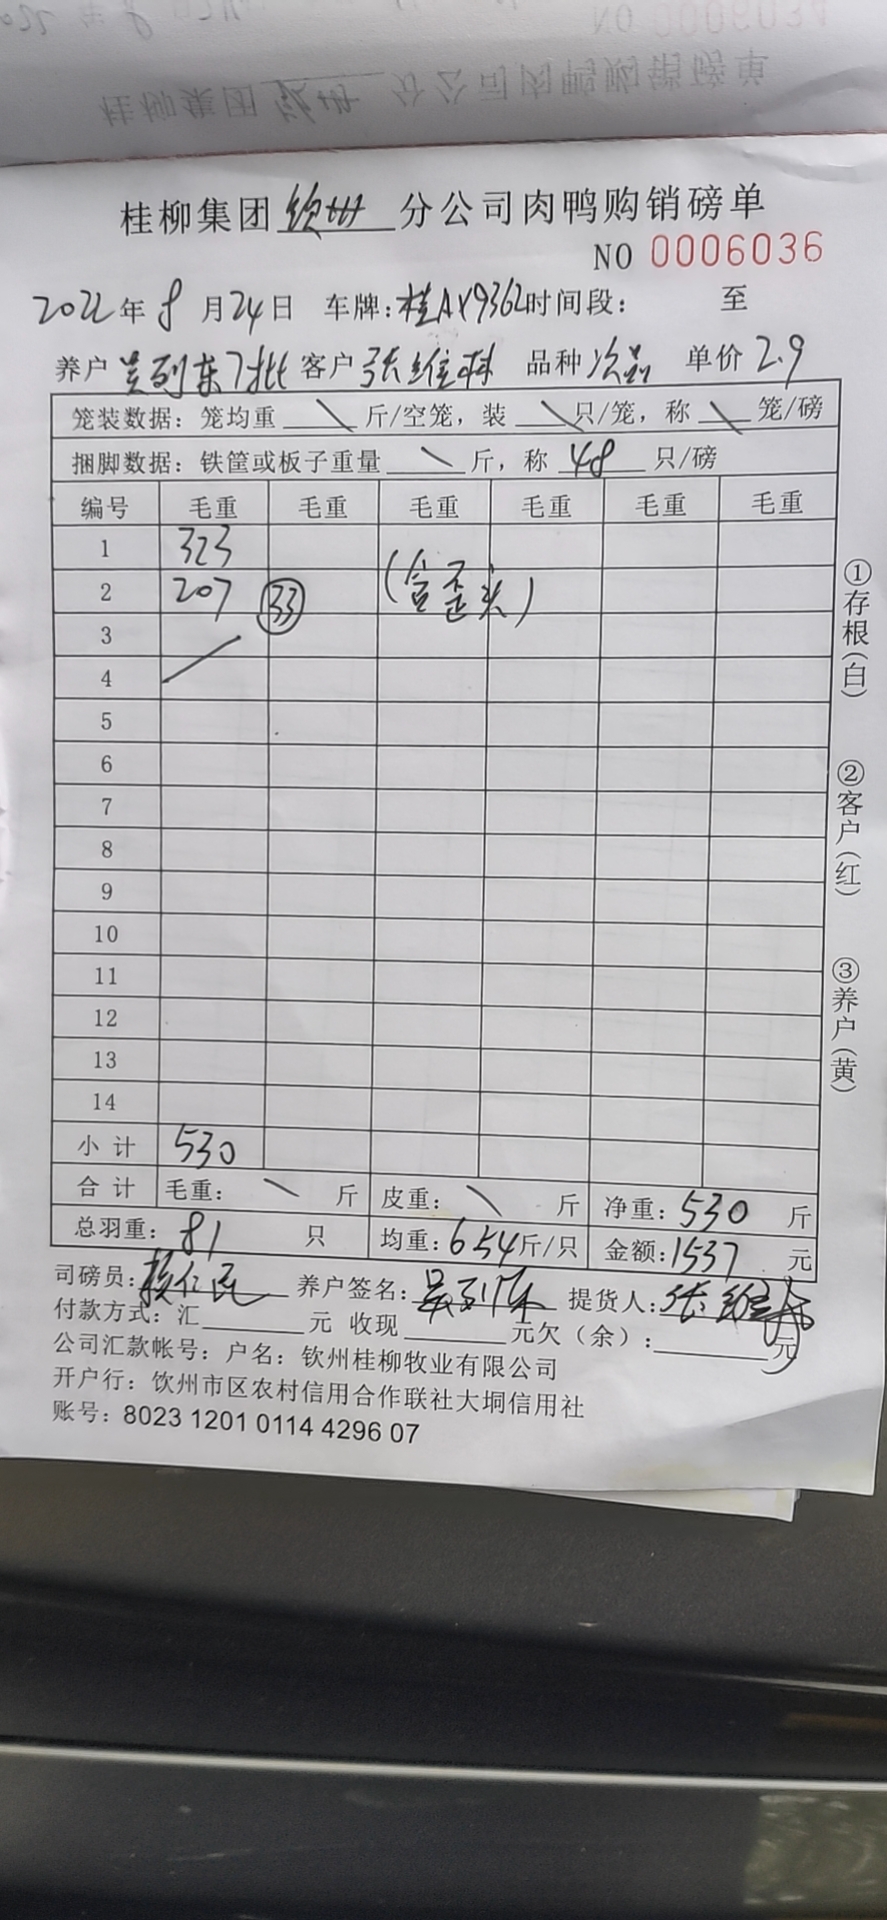 桂柳集团钦州分公司肉鸭购销磅单
NO 0006036
2022年8月24日 车牌:桂AY9362时间段: 至
养户吴列东7批 客户张维林 品种次品 单价2.9
笼装数据:笼均重 \ 斤/空笼,装 \ 只/笼,称 \ 笼/磅
捆脚数据:铁筐或板子重量 \ 斤,称 48 只/磅
编号 毛重 毛重 毛重 毛重 毛重 毛重
1 323
2 207 33 (含歪头)
3
4
5
6
7
8
9
10
11
12
13
14
小计 530
合计 毛重: \ 斤 皮重: \ 斤 净重:530 斤
总羽重:81 只 均重:6.54斤/只 金额:1537 元
司磅员: 养户签名:吴列东 提货人:张维林
付款方式:汇 元 收现 元欠(余): 元
公司汇款帐号:户名:钦州桂柳牧业有限公司
开户行:钦州市区农村信用合作联社大垌信用社
账号:8023 1201 0114 4296 07
①存根(白)
②客户(红)
③养户(黄)